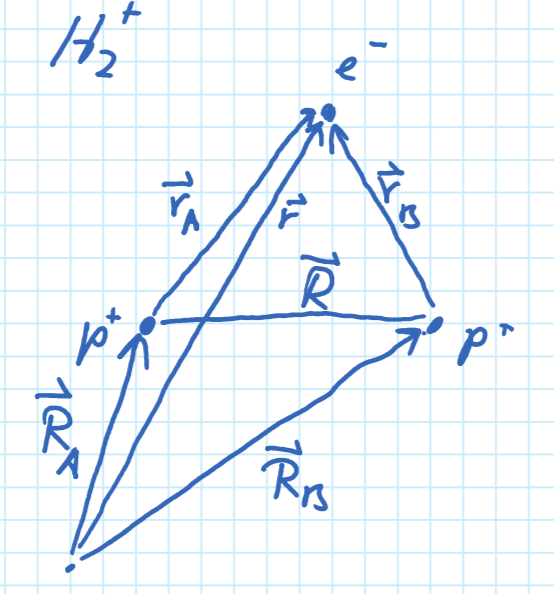 H₂⁺
e⁻
r⃗_A
r⃗
r⃗_B
R⃗
p⁺
p⁺
R⃗_A
R⃗_B